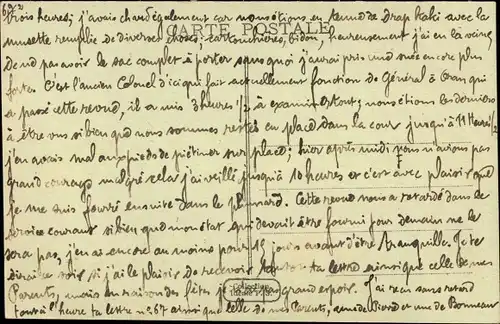 622
trois heures; j'avais chaud également car nous étions en tenue de drap kaki avec la
CARTE POSTALE
musette remplie de diverses choses; cartouchières, bidon; heureusement j'ai eu la veine
de ne pas avoir le sac complet à porter sans quoi j'aurai pris une suée encore plus
forte. C'est l'ancien Colonel d'ici qui fait actuellement fonction de Général à Oran qui
a passé cette revue, il a mis 3 heures 1/2 à examiner tout; nous étions les derniers
à être vus si bien que nous sommes restés en place dans la cour jusqu'à 11 heures 1/2
j'en avais mal aux pieds de piétiner sur place; hier après midi nous n'avions pas
grand courage malgré cela j'ai veillé jusqu'à 10 heures et c'est avec plaisir que
je me suis fourré ensuite dans le plumard. Cette revue nous a retardé dans le
service courant si bien que mon état qui devait être fourni pour demain ne le
sera pas, j'en ai encore au moins pour 15 jours avant d'être tranquille. Je te
dirai ce soir si j'ai le plaisir de recevoir tantôt ta lettre ainsi que celle de mes
Parents, mais en raison des fêtes je n'ai pas grand espoir. J'ai reçu sans retard
Collection
tout à l'heure ta lettre n° 67 ainsi que celle de mes Parents, une de Pierre et une de Bonneau